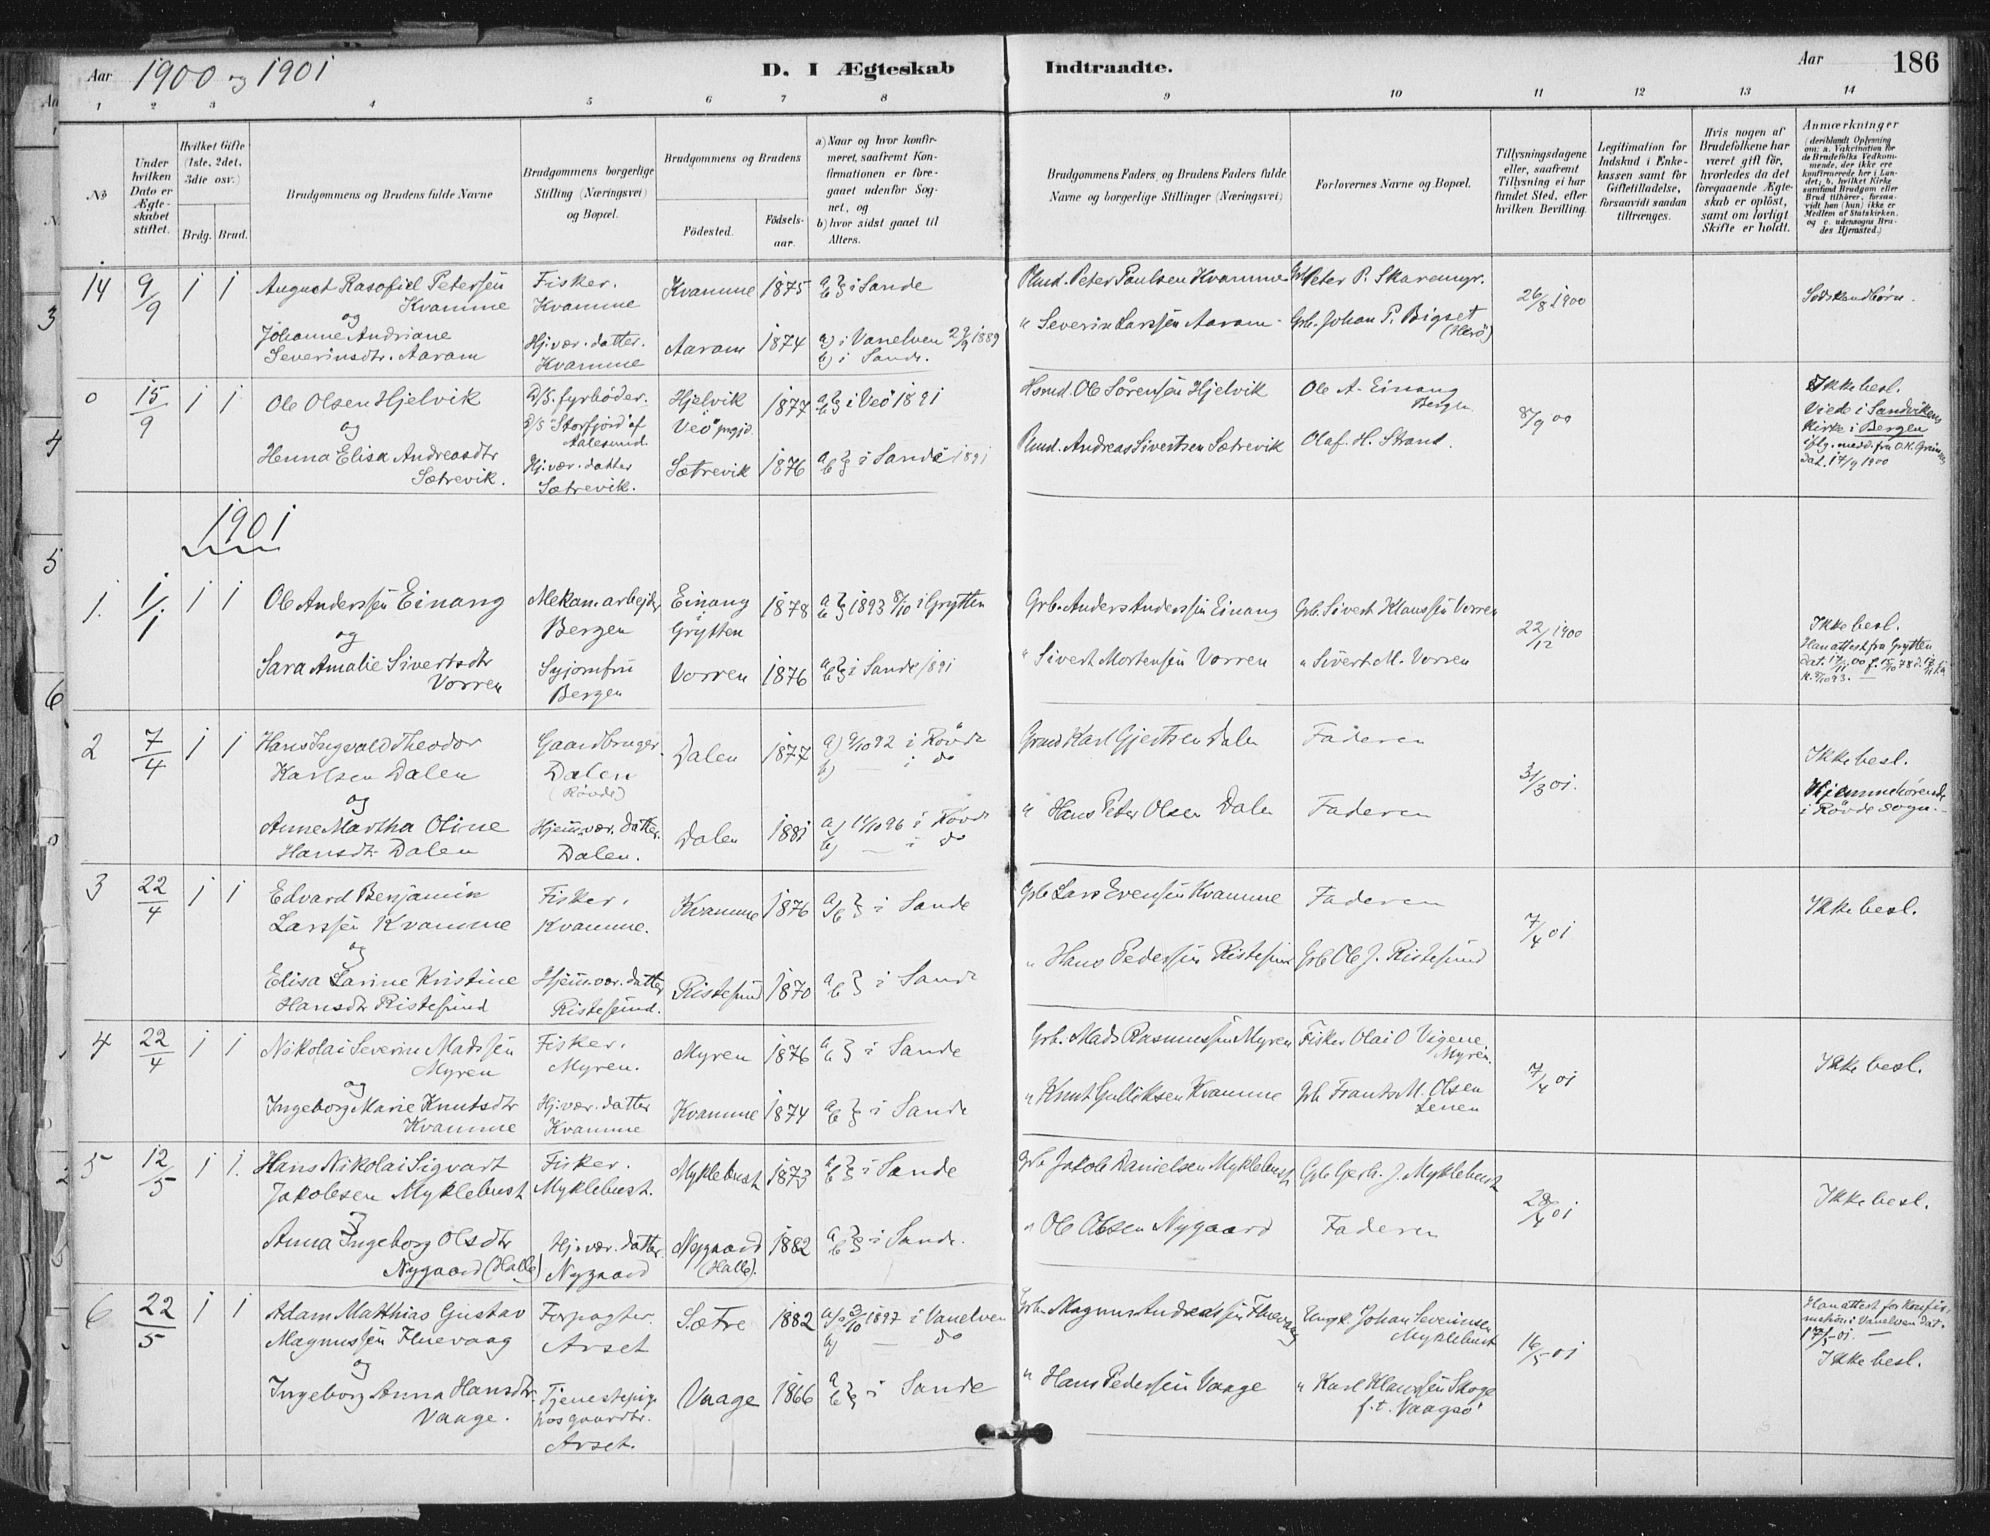 Aar 1900 og 1901
D. I Ægteskab Indtraadte.
Aar 186
1 2 3 4 5 6 7 8 9 10 11 12 13 14
No
Under hvilken Dato er Ægteskabet stiftet.
Hvilket Gifte (1ste, 2det, 3die osv.)
Brdg. Brud.
Brudgommens og Brudens fulde Navne
Brudgommens borgerlige Stilling (Næringsvei) og Bopæl.
Brudgommens og Brudens
Födested.
Födselsaar.
a) Naar og hvor konfirmeret, saafremt Konfirmationen er foregaaet udenfor Sognet, og
b) hvor sidst gaaet til Alters.
Brudgommens Faders, og Brudens Faders fulde Navne og borgerlige Stillinger (Næringsvei)
Forlovernes Navne og Bopæl.
Tillysningsdagene eller, saafremt Tillysning ei har fundet Sted, efter hvilken Bevilling.
Legitimation for Indskud i Enkekassen samt for Giftetilladelse, forsaavidt saadan tiltrænges.
Hvis nogen af Brudefolkene har været gift för, hvorledes da det foregaaende Ægteskab er oplöst, samt om lovligt Skifte er holdt.
Anmærkninger
(deriblandt Oplysning om: a. Vakcination for de Brudefolks Vedkommende, der ikke ere konfirmerede her i Landet; b. hvilket Kirkesamfund Brudgom eller Brud tilhörer, forsaavidt han (hun) ikke er Medlem af Statskirken, og c. udensogns Brudes Hjemsted.)
14 9/9 1 1 August Rasofiel Petersen Kvamme Fisker. Kvamme Kvamme 1875 a) b) i Sande Peter Paulsen Kvamme Peter P. Skaremyr. 26/8 1900 Södskendbörn.
og
Johanne Andriane Severinsdtr. Aaram Hj. vær. datter. Kvamme Aaram 1874 a) i Vanelven 29/9 1889 b) i Sande. " Severin Larssen Aaram Grb. Johan P. Bigset (Herö)
0 15/9 1 1 Ole Olsen Hjelvik D/S. fyrböder. D/S "Storfjord" af Aalesund. Hjelvik Veö prgjd. 1877 a) b) i Veö 1891 Hsmd. Ole Sörensen Hjelvik Ole A. Einang Bergen 8/9 00 Ikke besl. Viede i Sandvikens Kirke i Bergen
og
Henna Elisa Andreasdtr Sætrevik. Hj. vær. datter Sætrevik. Sætrevik 1876 a) b) i Sande 1891 Andreas Sivertsen Sætrevik Olaf. H. Strand. dat. 17/9 1900
1901
1. 1/1 1 1 Ole Anderssen Einang Mekan. arbejder Bergen Einang Grytten 1878 a) b) 1893 8/10 i Grytten Grb. Anders Anderssen Einang Grb. Sivert Klaussen Vorren 22/12 1900 Ikke besl.
og
Sara Amalie Sivertsdtr Vorren Syjomfru Bergen Vorren 1876 a) b) i Sande 1891 " Sivert Mortensen Vorren " Sivert M. Vorren Han attest fra Grytten
2 7/4 1 1 Hans Ingvald Theodor Karlsen Dalen Gaardbruger. Dalen (Rövde) Dalen 1877 a) 9/10 92 i Rövde b) — i do Karl Gjertsen Dalen Faderen 31/3 01. Ikke besl.
og
Anne Martha Oline Hansdtr Dalen Hjem. vær. datter. Dalen. Dalen 1881 a) 11/10 96 i Rövde b) — i do " Hans Peter Olsen Dalen Faderen Hjemmehörende i Rövde sogn.
3 22/4 1 1 Edvard Benjamin Larssen Kvamme Fisker. Kvamme. Kvamme 1876 a) b) i Sande Grb Lars Evensen Kvamme Faderen 7/4 01 Ikke besl.
og
Elisa Larine Kristine Hansdtr Ristesund Hjem. vær. datter Ristesund. Ristesund 1870 a) b) i Sande " Hans Pedersen Ristesund Grb Ole J. Ristesund
4 22/4 1 1 Nikolai Severin Madssen Myren Fisker. Myren. Myren 1876 a) b) i Sande Grb. Mads Rasmussen Myren Fisker Olai O Vigene, Myren. 7/4 01 Ikke besl.
og
Ingeborg Marie Knutsdtr Kvamme Hj. vær. datter Kvamme Kvamme 1874 a) b) i Sande " Knut Gulliksen Kvamme Grb Frants M. Olsen
5 12/5 1 1. Hans Nikolai Sigvart Jakobsen Myklebust Fisker. Myklebust. Myklebust 1873 a) b) i Sande Grb Jakob Danielsen Myklebust Grb Gerh. J. Myklebust 28/4 01 Ikke besl.
og
Anna Ingeborg Olsdtr Nygaard (Halle) Hj. vær. datter. Nygaard Nygaard (Halle). 1882 a) b) i Sande. " Ole Olsen Nygaard Faderen
6 22/5 1 1 Adam Matthias Gustav Magnussen Fluevaag Forpagter. Arset Sætre 1882 a) 3/10 1897 i Vanelven b) — do Grb. Magnus Andreassen Fluevaag Ungk. Johan Severinsen Myklebust 16/5 01 Han attest for Konfirmation i Vanelven dat.
og
Ingeborg Anna Hansdtr. Vaage. Tjenestepige Arset. Vaage 1866 a) b) i Sande " Hans Pedersen Vaage " Karl Klaussen Skoge f. t. Vaagsö Ikke besl.